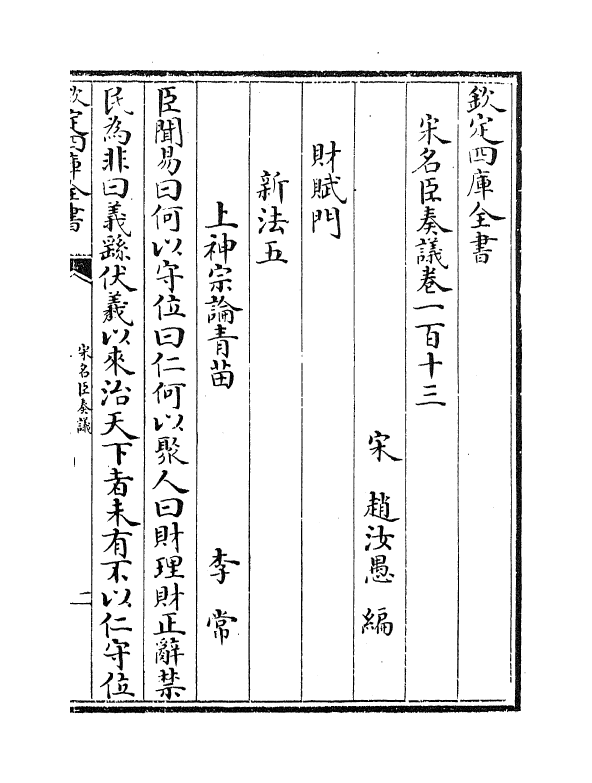 欽定四庫全書
宋名臣奏議卷一百十三
宋 趙汝愚 編
財賦門
新法五
上神宗論青苗 李常
臣聞易曰何以守位曰仁何以聚人曰財理財正辭禁
民為非曰義繇伏羲以來治天下者未有不以仁守位
欽定四庫全書
宋名臣奏議
一